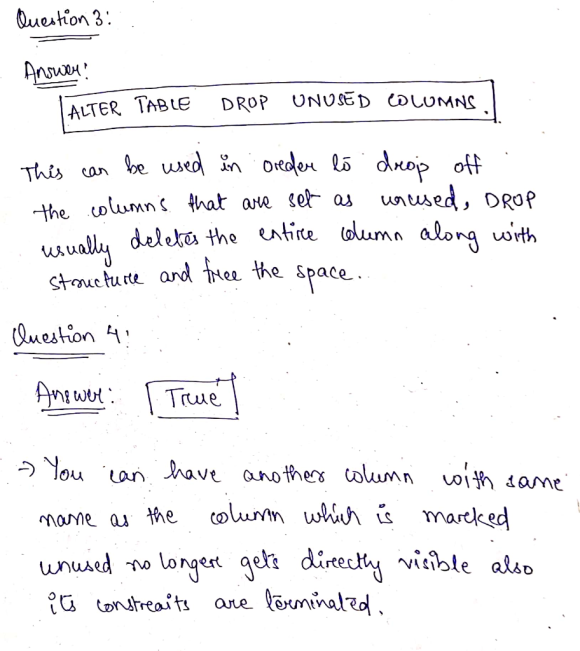 Question 3:
Answer:
ALTER TABLE DROP UNUSED COLUMNS.
This can be used in order to drop off
the columns that are set as unused, DROP
usually deletes the entire column along with
structure and free the space.
Question 4:
Answer: True
→ You can have another column with same
name as the column which is marked
unused no longer gets directly visible also
its constraits are terminated.